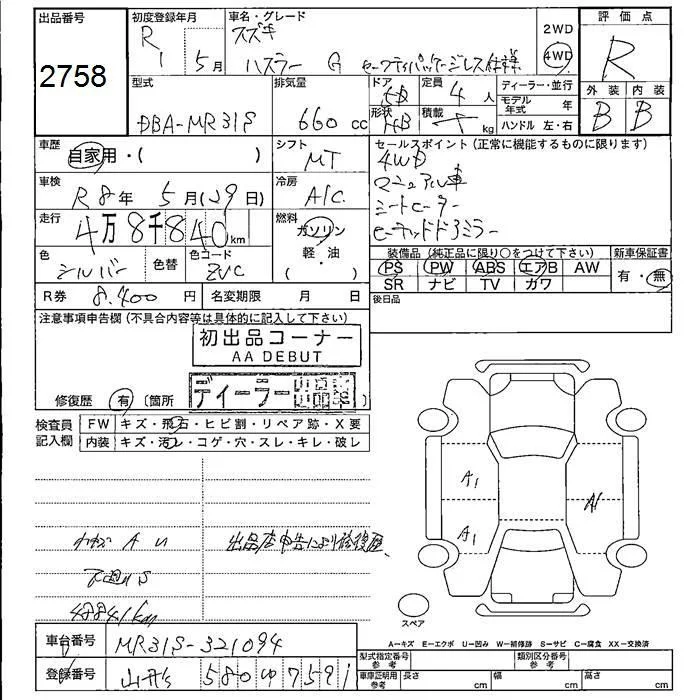 出品番号 2758
初度登録年月 R1 5月
車名・グレード スズキ ハスラー G セーフティパッケージレス仕様
2WD 4WD
評価点 R
外装 B 内装 B
型式 DBA-MR31S
排気量 660 cc
ドア 5D 形状 HB
定員 4 人 積載 kg
ディーラー・並行
モデル年式 年
ハンドル 左・右
車歴 自家用・( )
シフト MT
セールスポイント(正常に機能するものに限ります)
4WD
マニュアル車
シートヒーター
ヒーテッドドアミラー
車検 R8年 5月(29日)
冷房 A/C
走行 4万8千840km
燃料 ガソリン 軽・油 ( )
色 シルバー 色替 色コード ZUC
装備品(純正品に限り○をつけて下さい) 新車保証書
PS PW ABS エアB AW 有・無
SR ナビ TV カワ
R券 8,400円 名変期限 月 日
後日品
注意事項申告欄(不具合内容等は具体的に記入して下さい)
初出品コーナー
AA DEBUT
ディーラー出品車
修復歴 有(箇所 )
検査員記入欄 FW キズ・飛石・ヒビ割・リペア跡・X要
内装 キズ・汚レ・コゲ・穴・スレ・キレ・破レ
A1
A1
A1
A U
出品店申告により修復歴
48841km
スペア
A-キズ E-エクボ U-凹み W-補修跡 S-サビ C-腐食 XX-交換済
車台番号 MR31S-321094
登録番号 山形 580 ゆ 7591
型式指定番号 参考 類別区分番号 参考
車庫証明用 参考 長さ cm 幅 cm 高さ cm